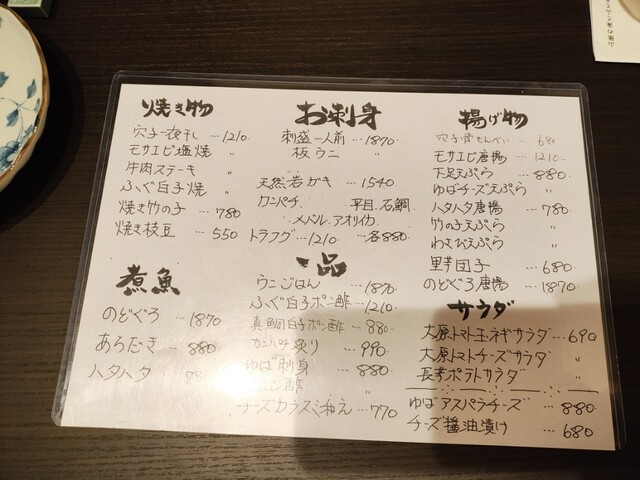 焼き物
穴子一夜干し …1210
モサエビ塩焼 〃
牛肉ステーキ 〃
ふぐ白子焼 〃
焼き竹の子 …780
焼き枝豆 …550
お刺身
刺盛一人前 …1870
板ウニ 〃
天然岩ガキ …1540
カンパチ 平目.石鯛
メバル.アオリイカ
トラフグ…1210 …各880
揚げ物
穴子骨せんべい …680
モサエビ唐揚 …1210
下足天ぷら …880
ゆばチーズ天ぷら 〃
ハタハタ唐揚 …780
竹の子天ぷら 〃
わさび天ぷら 〃
野芋団子 …680
のどぐろ唐揚 …1870
煮魚
のどぐろ …1870
あらだき …880
ハタハタ
一品
ウニごはん …1870
ふぐ白子ポン酢 …1210
真鯛白子ポン酢 …880
カンパチ炙り …990
ゆば刺身 …880
ン酢 〃
チーズカラスミ和え …770
サラダ
大原トマト玉ネギサラダ …690
大原トマトチーズサラダ 〃
長芋ポテトサラダ 〃
ゆばアスパラチーズ …880
チーズ醤油漬け …680